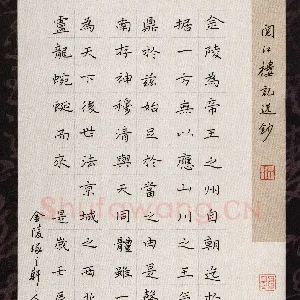 閱江樓記選鈔
金陵為帝王之州自朝迄於
据一方無以應山川之王氣
鼎於茲始足於當之由是聲
南存神穆清與天同體雖一
為天下後世法京城之西北
盧龍蜿蜒而來 是歲壬辰
金陵
Shufawang.CN